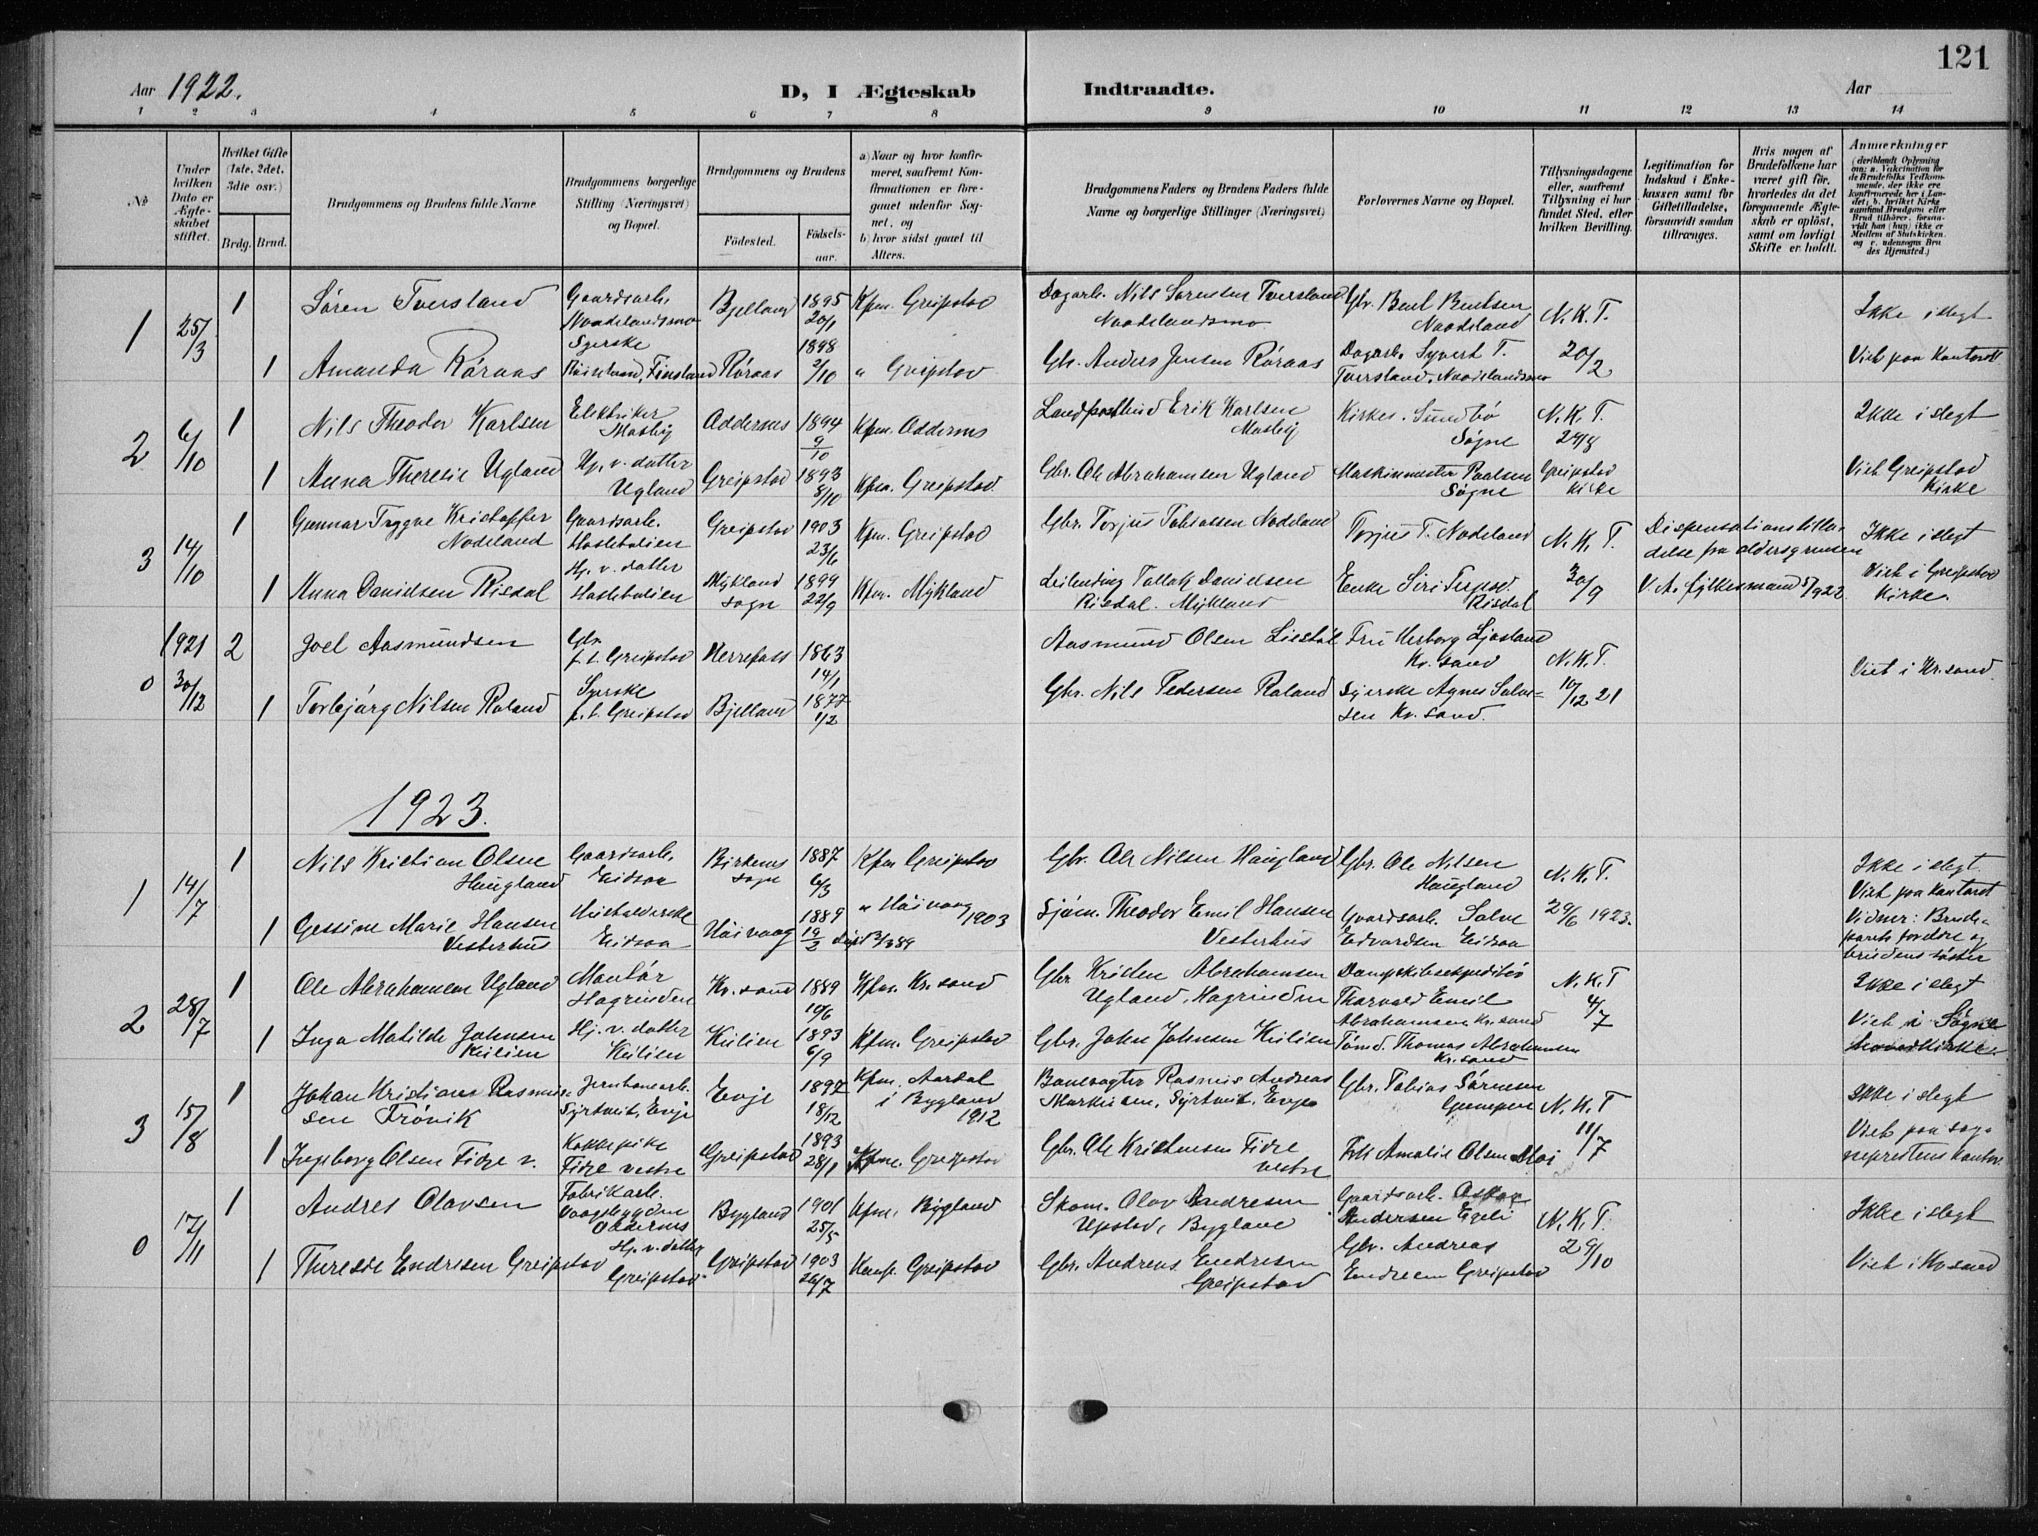 121
Aar 1922. D, I Ægteskab Indtraadte. Aar
1 2 3 4 5 6 7 8 9 10 11 12 13 14
№
Under hvilken Dato er Ægteskabet stiftet.
Hvilket Gifte (1ste, 2det, 3die osv.)
Brdg. Brud.
Brudgommens og Brudens fulde Navne
Brudgommens borgerlige Stilling (Næringsvei) og Bopæl.
Brudgommens og Brudens
Födested. Födselsaar.
a) Naar og hvor konfirmeret, saafremt Konfirmationen er foregaaet udenfor Sognet, og
b) hvor sidst gaaet til Alters.
Brudgommens Faders og Brudens Faders fulde Navne og borgerlige Stillinger (Næringsvei)
Forlovernes Navne og Bopæl.
Tillysningsdagene eller, saafremt Tillysning ei har fundet Sted, efter hvilken Bevilling.
Legitimation for Indskud i Enkekassen samt for Giftetilladelse, forsaavidt saadan tiltrænges.
Hvis nogen af Brudefolkene har været gift för, hvorledes da det foregaaende Ægteskab er oplöst, samt om lovligt Skifte er holdt.
Anmerkninger
(deriblandt Oplysning om: a. Vakcination for de Brudefolks Vedkommende, der ikke ere konfirmerede her i Landet; b. hvilket Kirkesamfund Brudgom eller Brud tilhörer, forsaavidt han (hun) ikke er Medlem af Statskirken, og c. udensogns Brudes Hjemsted.)
1 25/3 1 Søren Tversland Gaardsarb. Naadelandsmo Bjelland 1895 20/1 Kfm. Greipstad Dagarb. Nils Sørensen Tversland Naadelandsmo Gbr. Bent Bentsen Naadeland N. K. T. Ikke i slegt
1 Amanda Røraas Syerske Finsland Røraas 1898 2/10 " Greipstad Gbr. Anders Jensen Røraas Dagarb. Syvert T. Tversland, Naadelandsmo 20/2 Viet paa Kontoret
2 6/10 1 Nils Theodor Karlsen Elektriker Mosby Oddernes 1894 9/10 Kfm. Oddernes Landpostbud Erik Karlsen Mosby Kirkes. Sundbø Søgne N. K. T. 24/8 Ikke i slegt
1 Anna Theresie Ugland Hj. v. datter Ugland Greipstad 1893 8/10 Kfm. Greipstad. Gbr. Ole Abrahamsen Ugland Maskinmester Paulsen Søgne Greipstad Kirke Viet Greipstad Kirke
3 14/10 1 Gunnar Tryggve Kristoffer Nodeland Gaardsarb. Haslebalien Greipstad 1903 23/6 Kfm. Greipstad Gbr. Torjus Tobiassen Nodeland Torjus T. Nodeland N. K. T. Dispensationstilladelse fra aldersgrensen Ikke i slegt
1 Anna Danielsen Risdal Hj. v. datter Haslebalien Mykland sogn 1899 22/9 Kfm. Mykland Leilending Tallak Danielsen Risdal. Mykland Enke Siri Risdal 30/9 V. A. fylkesmand 5/9 22 Viet i Greipstad Kirke.
0 1921 30/12 2 Joel Aasmundsen Gbr. f. t. Greipstad Herrefoss 1863 14/1 Aasmund Olsen Liestøl Fru Herborg Ljosland Kr. sand N. K. T. Viet i Kr. sand.
1 Torbjørg Nilsen Roland Syerske f. t. Greipstad Bjelland 1877 1/2 Gbr. Nils Pedersen Roland Syerske Agnes Salvesen Kr. sand. 10/12 21
1923.
1 14/7 1 Nils Kristian Olsen Haugland Gaardsarb. Eidsaa Birkenes sogn 1887 6/3 Kfm Greipstad Gbr. Ole Nilsen Haugland Gbr. Ole Nilsen Haugland N. K. T. Ikke i slegt. Viet paa Kontoret
1 Gessine Marie Hansen Vesterhus Husholderske Eidsaa Høivaag 1889 19/2 " Høivaag 1903 Sjøm. Theodor Emil Hansen Vesterhus Gaardsarb. Salve Edvardsen Eidsaa 29/6 1923. Vidner: Brudeparets foreldre og brudens søster
2 28/7 1 Ole Abrahamsen Ugland Montør Hagrinden Kr. sand 1889 19/6 Kfm. Kr. sand Gbr. Kristen Abrahamsen Ugland, Hagrinden Dampskibsekspeditør Thorvald Emil Abrahamsen Kr. sand N. K. T Ikke i slegt
1 Inga Matilde Johnsen Kulien Hj. v. datter Kulien Kulien 1893 6/9 Kfm. Greipstad Gbr. John Johnsen Kulien Tømd. Thomas Abrahamsen Kr. sand 4/7 Viet i Søgne hovedkirke.
3 15/8 1 Johan Kristian Rasmussen Frønik Jernbanearb. Syrtveit, Evje Evje 1897 18/12 Kfm. Aardal i Bygland 1912 Banevogter Rasmus Andreas Markussen, Syrtveit, Evje Gbr. Tobias Sørensen N. K. T Ikke i slegt
1 Ingeborg Olsen Fidje v. Kokkepike Fidje vestre Greipstad 1893 28/1 Kfm. Greipstad Gbr. Ole Kristensen Fidje vestre Frk Amalie Olsen Moi 11/7 Viet paa sogneprestens kontor
0 17/11 1 Andres Olavsen Fabrikarb. Vaagsbygden Oddernes Bygland 1901 25/5 Kfm. Bygland Skom. Olav Andresen Upstad, Bygland Gaardsarb. Oskar Andersen Egeli N. K. T. Ikke i slegt
1 Therese Endresen Greipstad Hj. v. datter Greipstad. Greipstad 1903 26/7 Konf. Greipstad Gbr. Andreas Endresen Greipstad Gbr. Andreas Endresen Greipstad 29/10 Viet i Kr.sand